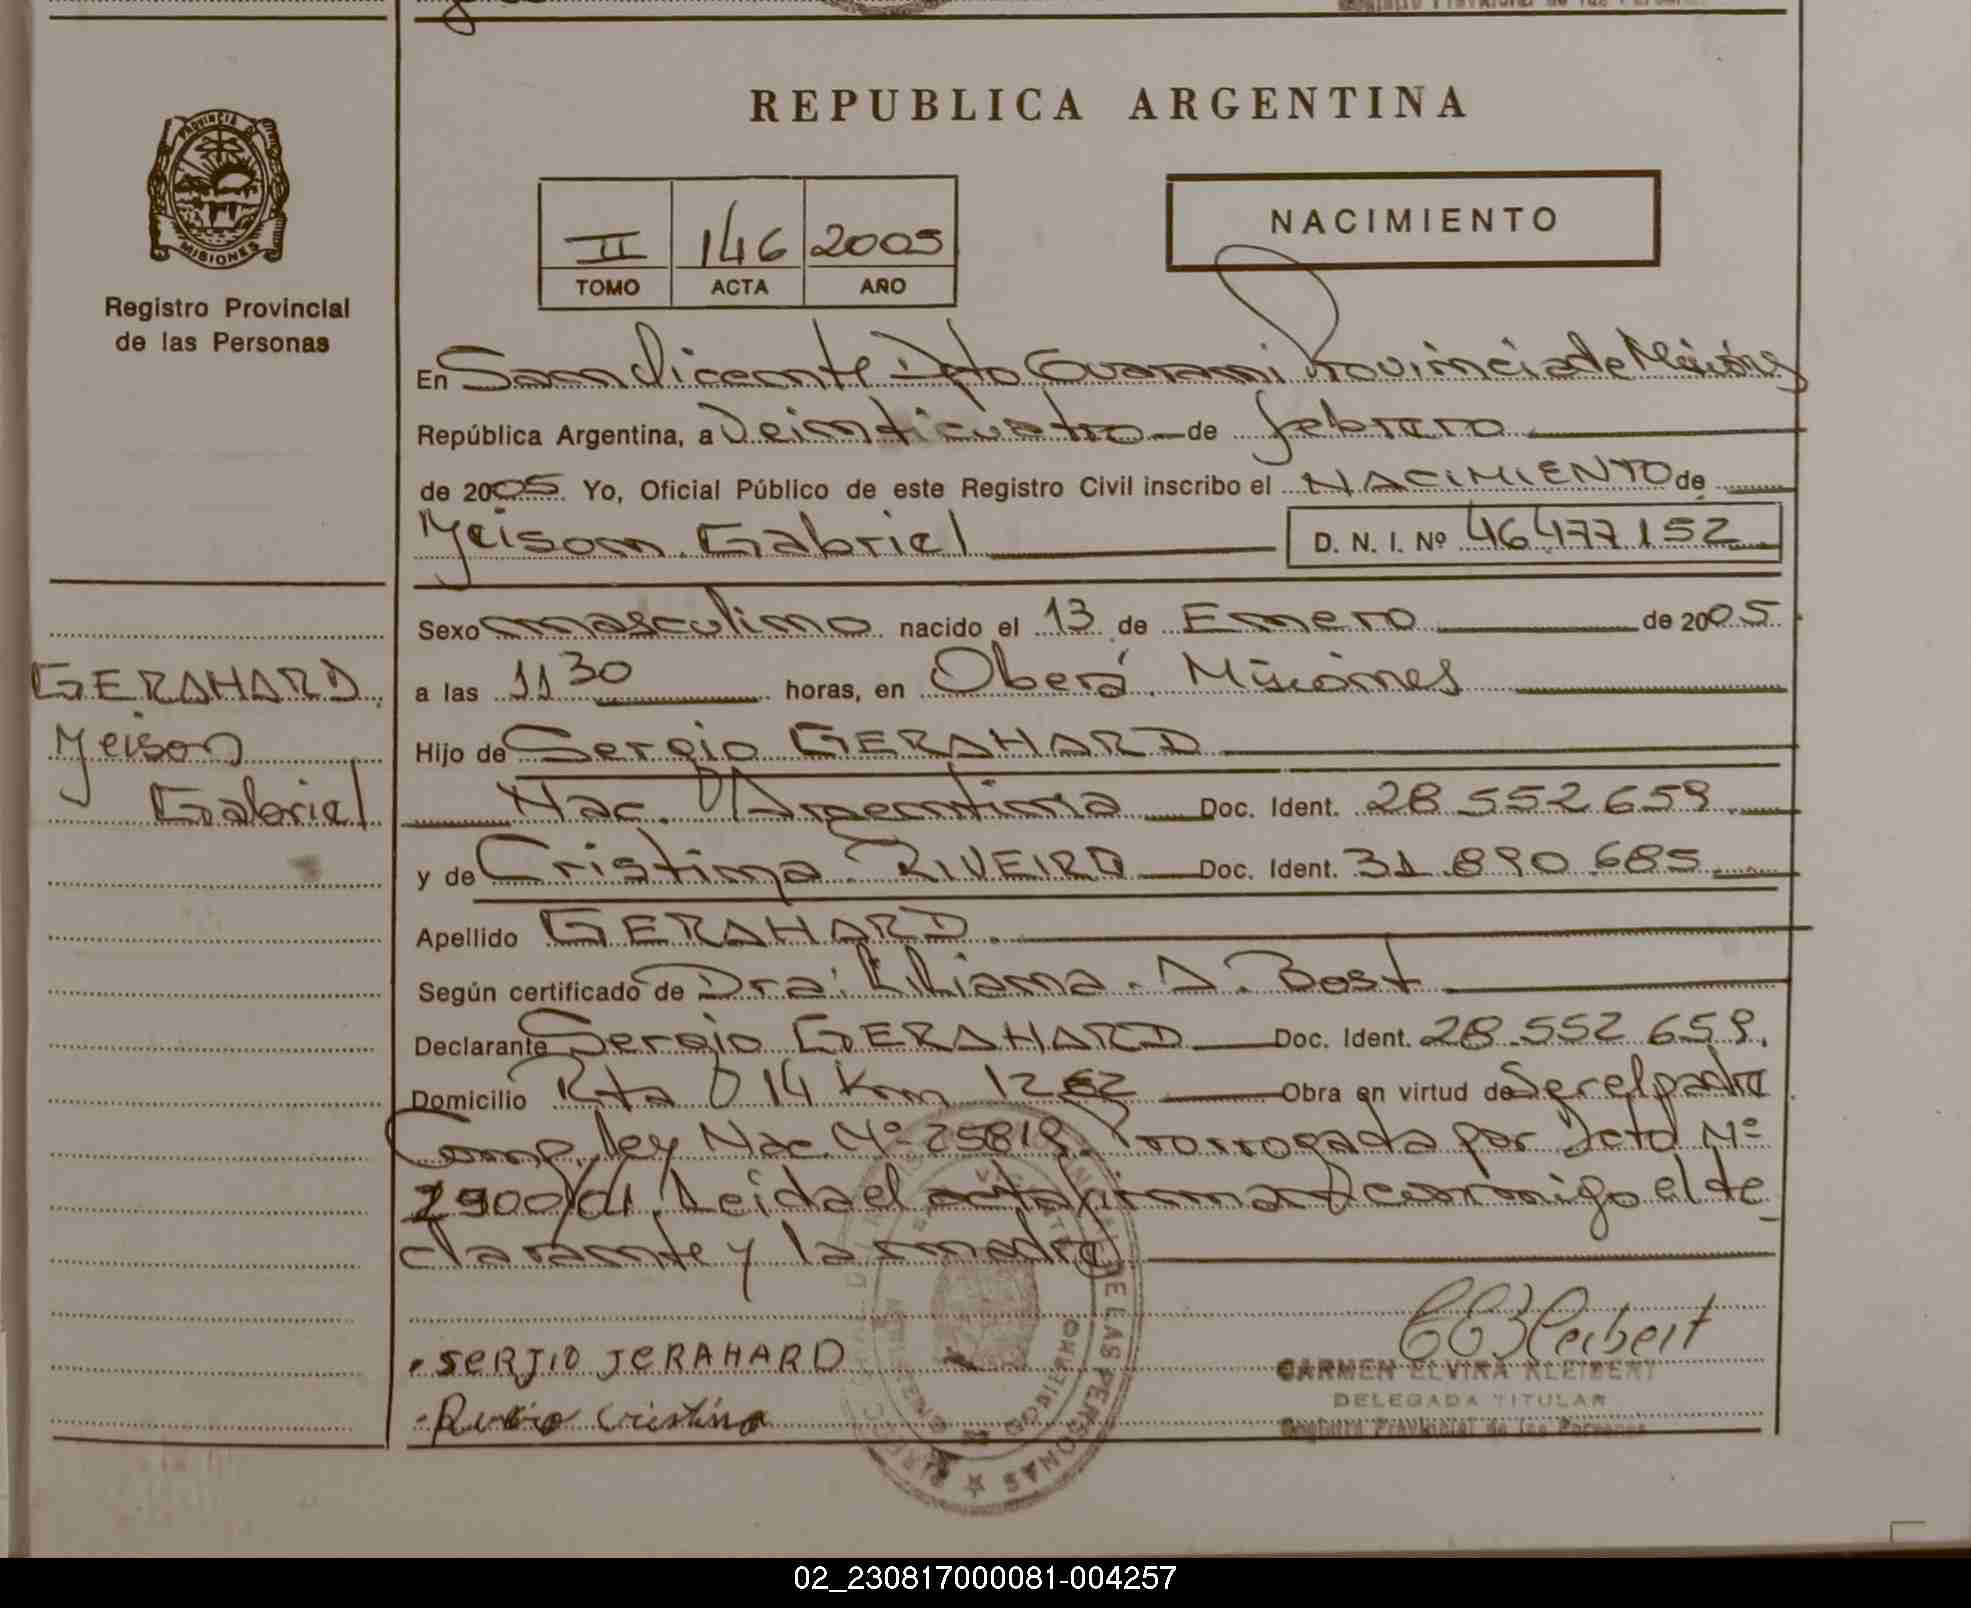 REPUBLICA ARGENTINA
PROVINCIA DE
MISIONES
Registro Provincial
de las Personas
II 146 2005
TOMO ACTA AÑO
NACIMIENTO
En San Vicente Dpto Guaraní Provincia de Misiones
República Argentina, a Veinticuatro de febrero
de 2005 Yo, Oficial Público de este Registro Civil inscribo el NACIMIENTO de
Yeison Gabriel D. N. I. Nº 46.477.152
Sexo masculino nacido el 13 de Enero de 2005
a las 11 30 horas, en Oberá Misiones
Hijo de Sergio GERAHARD
Nac. Argentina Doc. Ident. 28.552.659
y de Cristina RIVEIRO Doc. Ident. 31.890.685
Apellido GERAHARD.
Según certificado de Dra: Liliana. A. Bost
Declarante Sergio GERAHARD Doc. Ident. 28.552.659.
Domicilio Rta 14 Km 1262 Obra en virtud de Ser el padre
Comp. ley Nac. Nº 25819. Prorrogada por Dcto Nº
1900/04. Leida el acta firman conmigo el de
clarante y la madre
GERAHARD
Yeison
Gabriel
SERJIO JERAHARD
Cristina
CARMEN ELVIRA KLEIBERT
DELEGADA TITULAR
Registro Provincial de las Personas
DE LAS PERSONAS
GOBIERNO
02_230817000081-004257